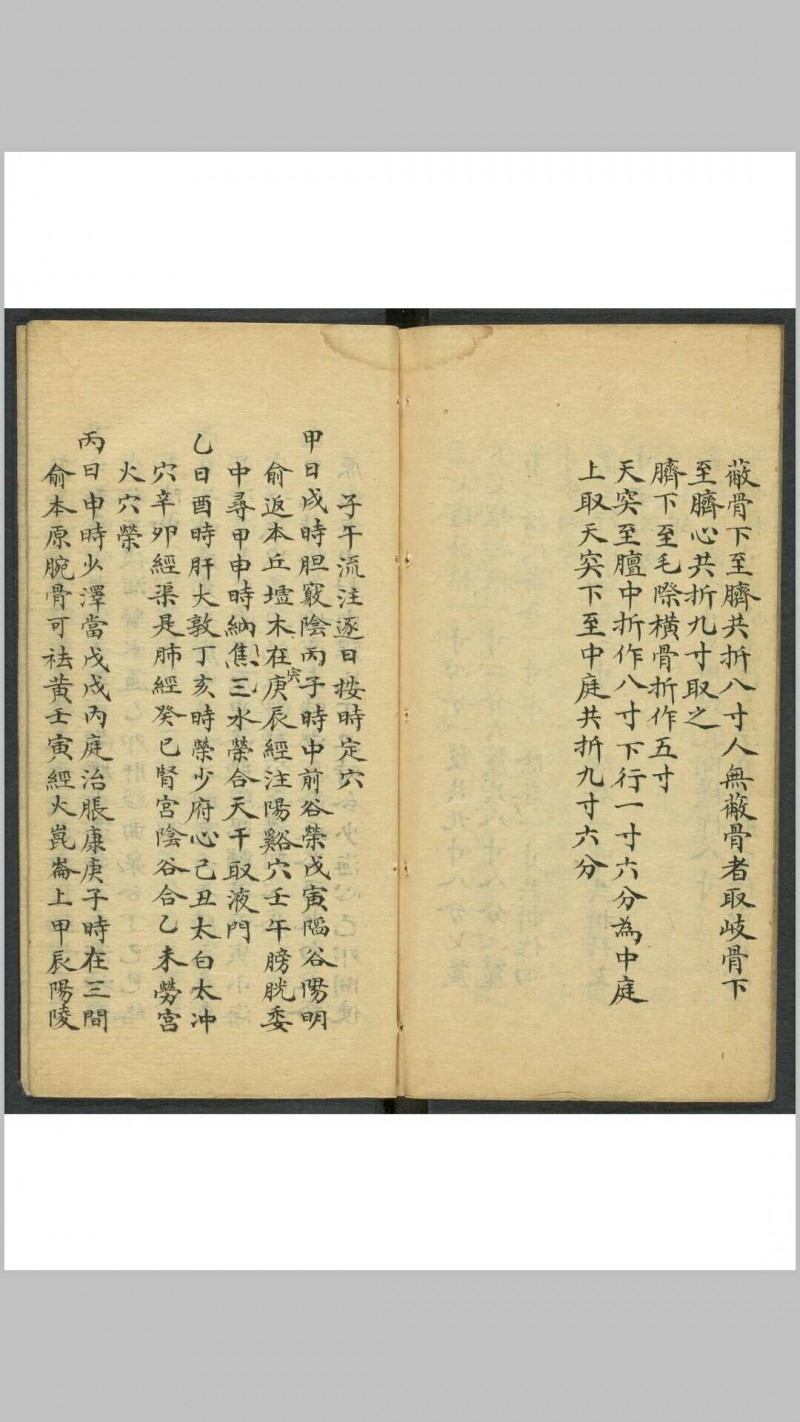 蔽骨下至臍共折八寸人無蔽骨者取岐骨下
至臍心共折九寸取之
臍下至毛際橫骨折作五寸
天突至膻中折作八寸下行一寸六分為中庭
上取天突下至中庭共折九寸六分
子午流注逐日按時定穴
甲日戌時胆竅陰丙子時中前谷榮戊寅陷谷陽明
俞返本丘墟木在寅庚辰經注陽谿穴壬午膀胱委
中尋甲申時納焦三水榮合天干取液門
乙日酉時肝大敦丁亥時榮少府心己丑太白太冲
穴辛卯經渠是肺經癸巳腎宮陰谷合乙未勞宮
火穴榮
丙日申時少澤當戊戌丙庭治脹康庚子時在三間
俞本原腕骨可祛黃壬寅經火崑崙上甲辰陽陵